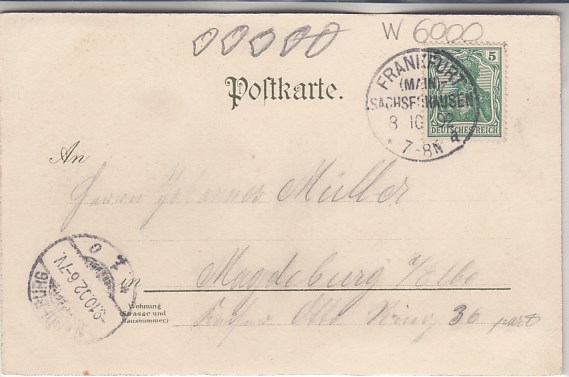 00000 W 6000
Postkarte.
FRANKFURT
(MAIN)-
SACHSENHAUSEN
8 10 02
* 7-8N d
5
DEUTSCHES REICH
An
Herrn Johannes Müller
in Magdeburg a/Elbe
Wohnung
(Strasse und
Hausnummer)
Otto 36 part
MAGDEBURG
-9.10.02.6-7V.